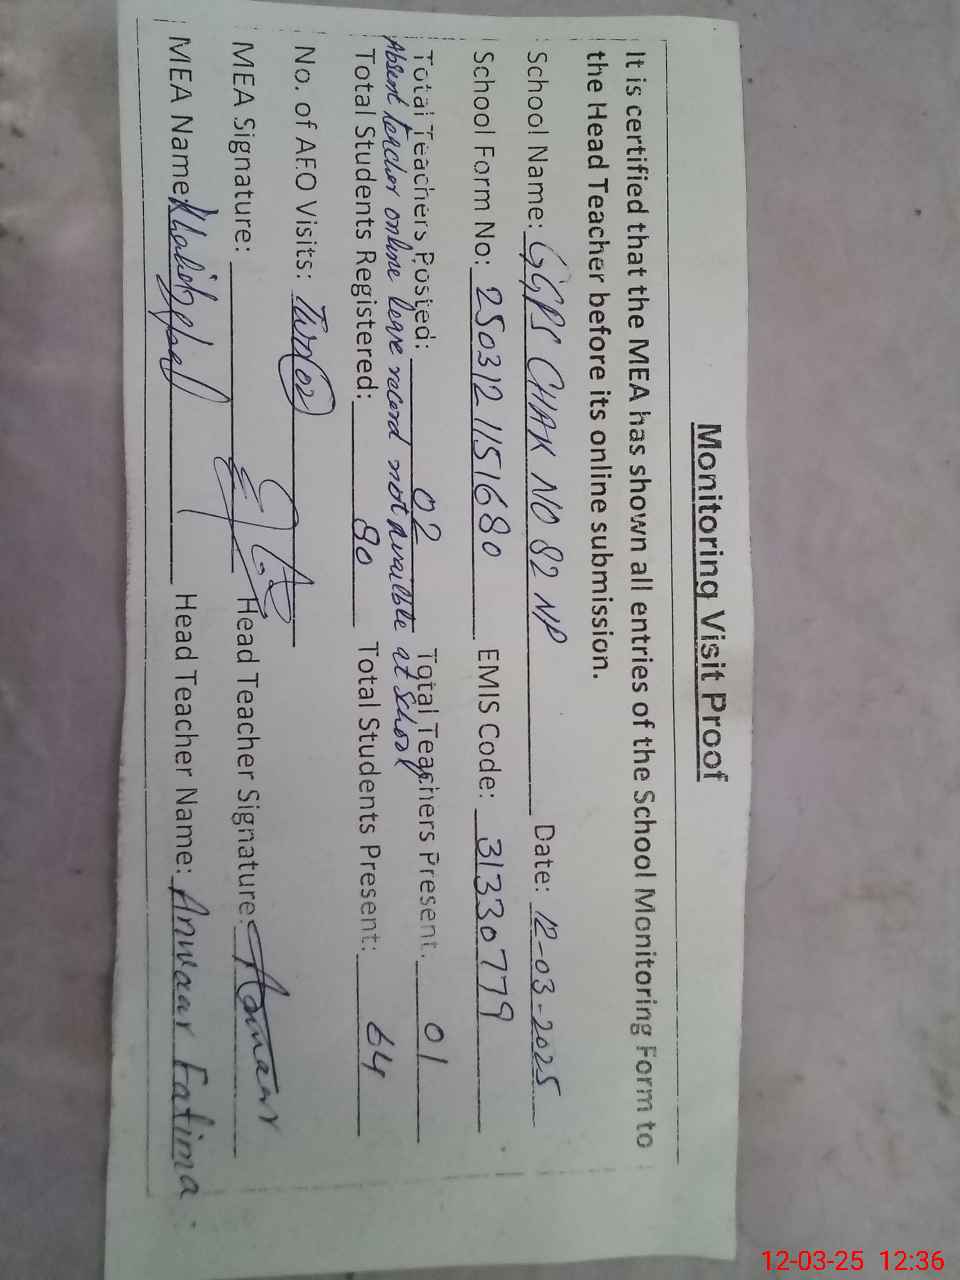 Monitoring Visit Proof
It is certified that the MEA has shown all entries of the School Monitoring Form to
the Head Teacher before its online submission.
School Name: GGPS CHAK NO 82 NP Date: 12-03-2025
School Form No: 2503121151680 EMIS Code: 31330779
Total Teachers Posted: 02 Total Teachers Present: 01
Absent teacher online leave record not availble at school
Total Students Registered: 80 Total Students Present: 64
No. of AEO Visits: Two(02)
MEA Signature: Head Teacher Signature: Anwaar
MEA Name: Head Teacher Name: Anwaar Fatima
12-03-25 12:36